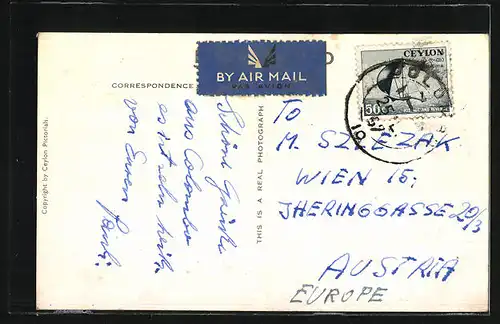 CORRESPONDENCE
BY AIR MAIL
PAR AVION
CEYLON
50c
Copyright by Ceylon Pictorials.
THIS IS A REAL PHOTOGRAPH
Schöne Grüße
aus Colombo
es ist sehr heiß
von Euren
TO
M. SZLEZAK
WIEN 15,
JHERINGGASSE 20/3
AUSTRIA
EUROPE